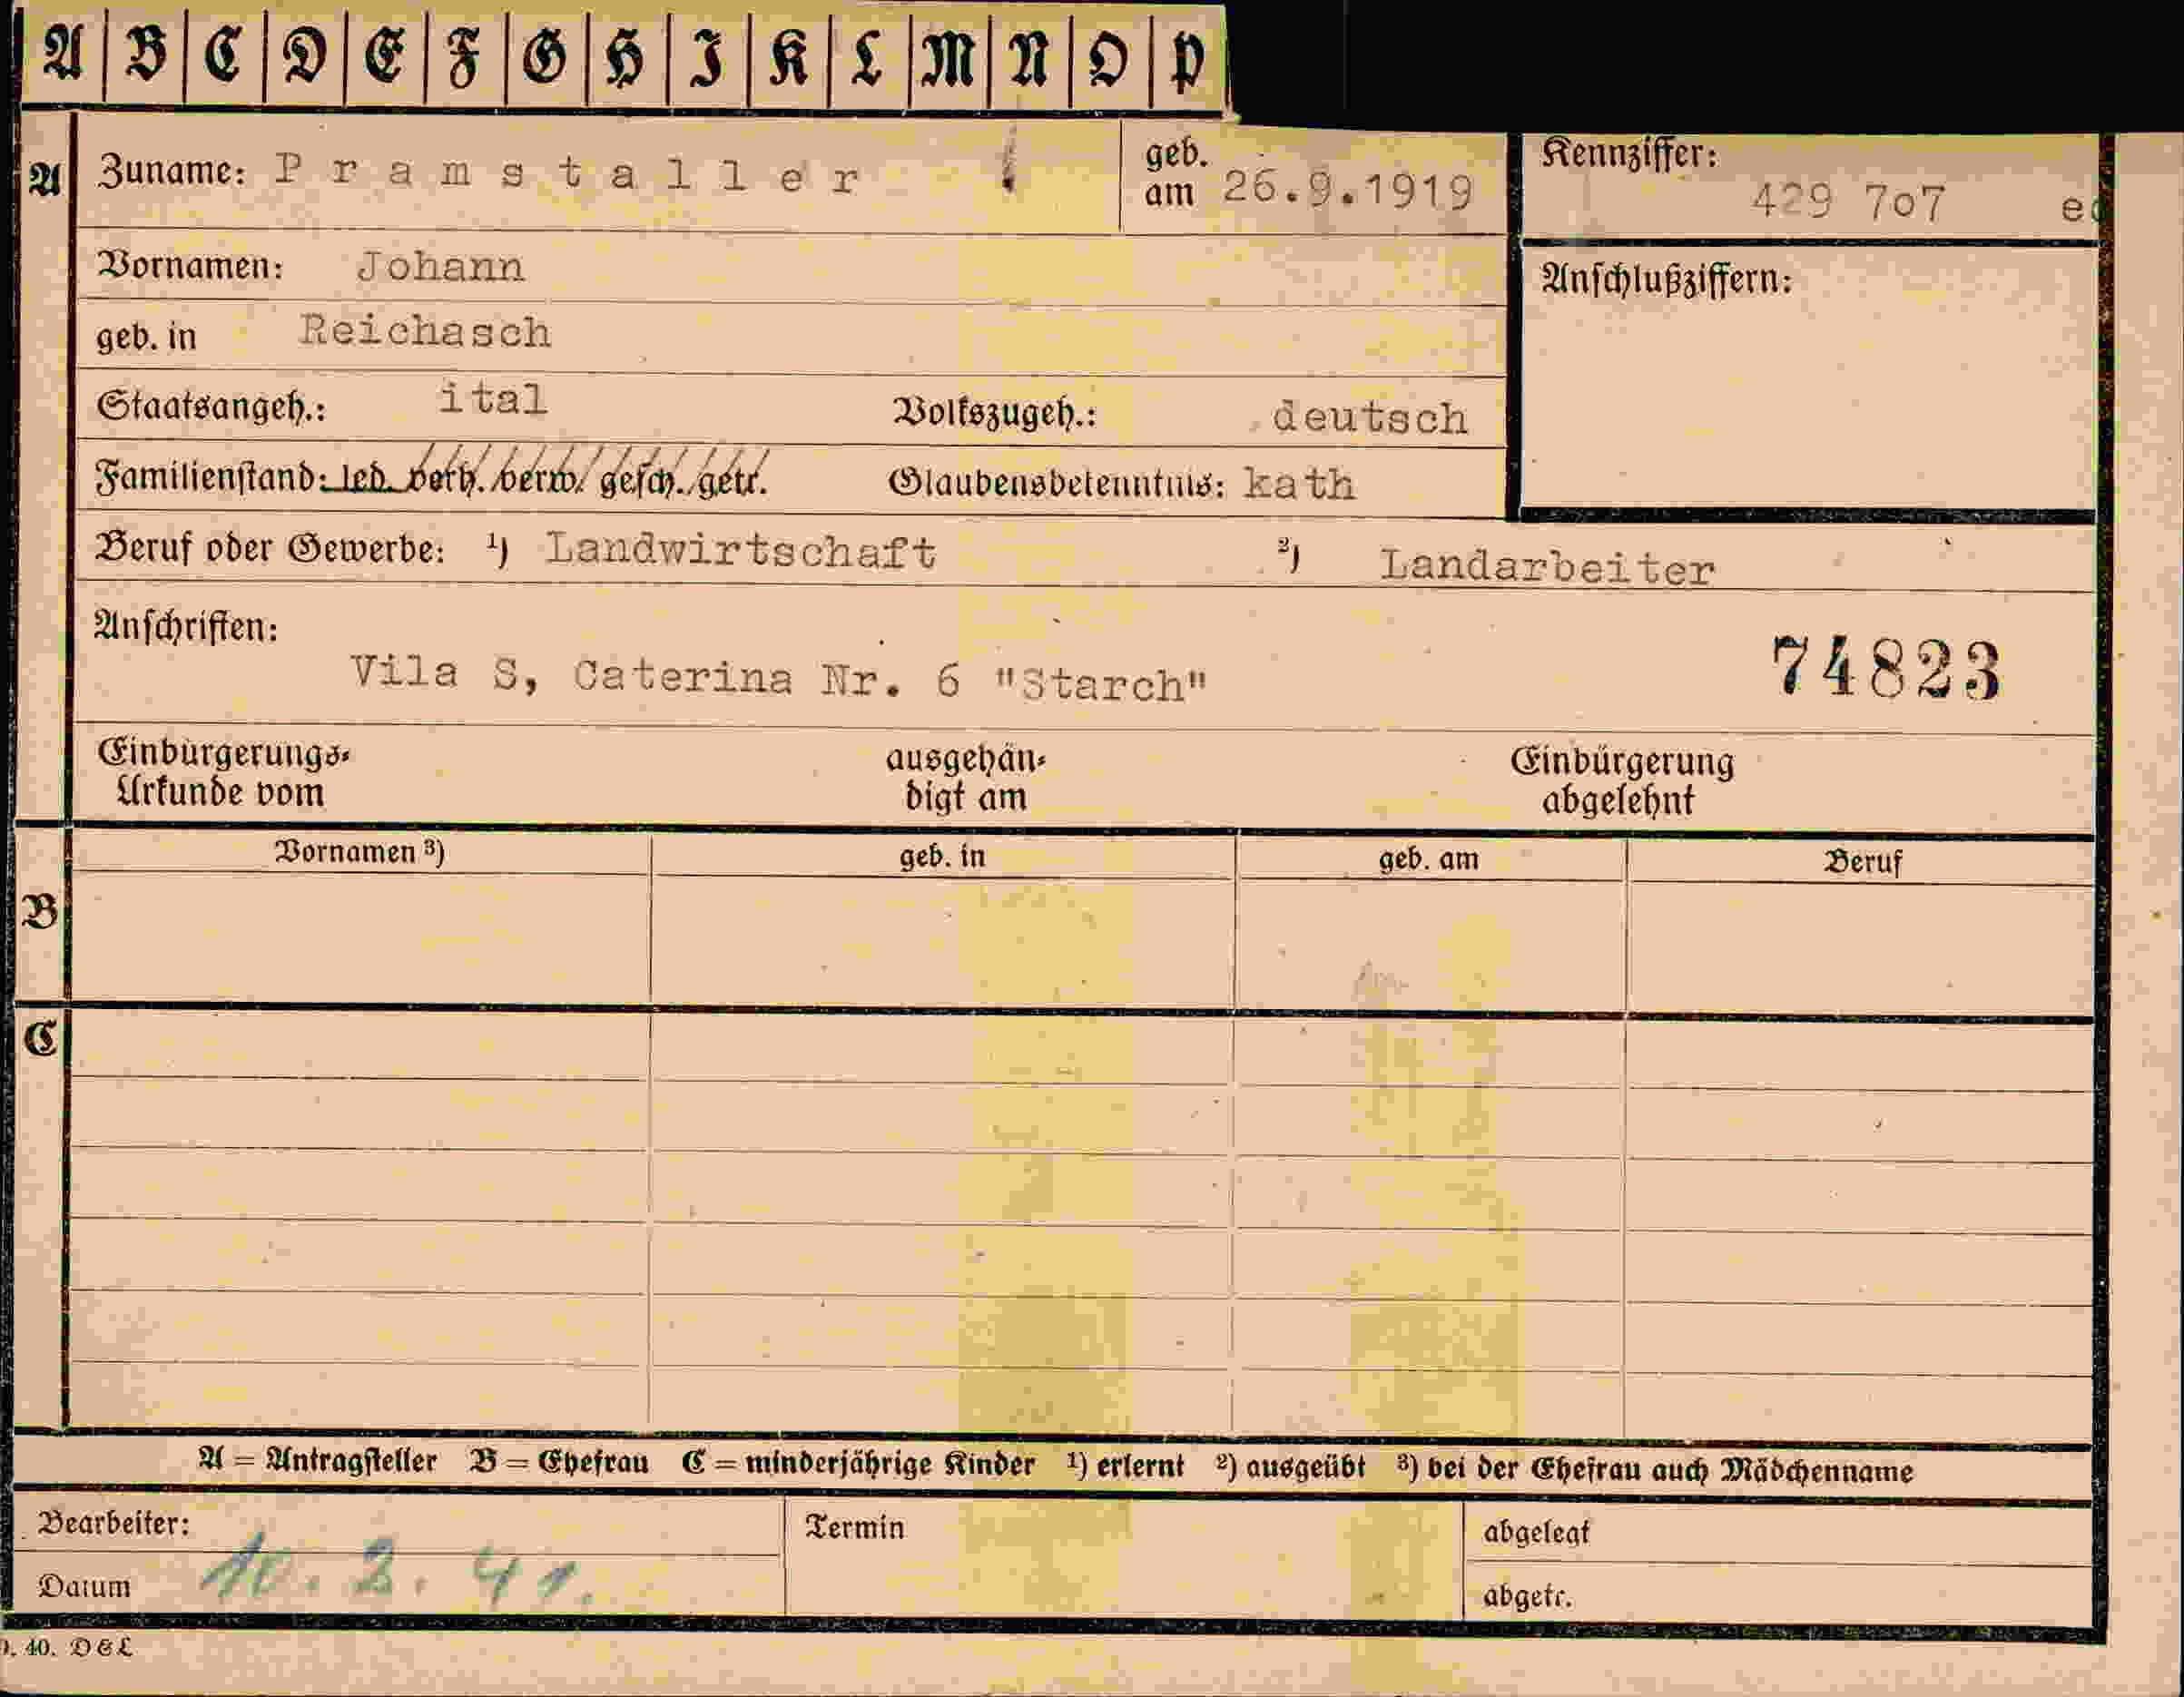 A B C D E F G H I K L M N O P
A Zuname: Pramstaller geb. am 26.9.1919 Kennziffer: 429 7o7
Vornamen: Johann
Anschlußziffern:
geb. in Reichasch
Staatsangeh.: ital Volkszugeh.: deutsch
Familienstand: led. verh. verw. gesch. getr. Glaubensbekenntnis: kath
Beruf oder Gewerbe: 1) Landwirtschaft 2) Landarbeiter
Anschriften:
74823
Vila S, Caterina Nr. 6 "Starch"
Einbürgerungs- ausgehän- Einbürgerung
Urkunde vom digt am abgelehnt
Vornamen 3) geb. in geb. am Beruf
B
C
A = Antragsteller B = Ehefrau C = minderjährige Kinder 1) erlernt 2) ausgeübt 3) bei der Ehefrau auch Mädchenname
Bearbeiter: Termin abgelegt
Datum 10. 2. 41. abgetr.
40. DEL